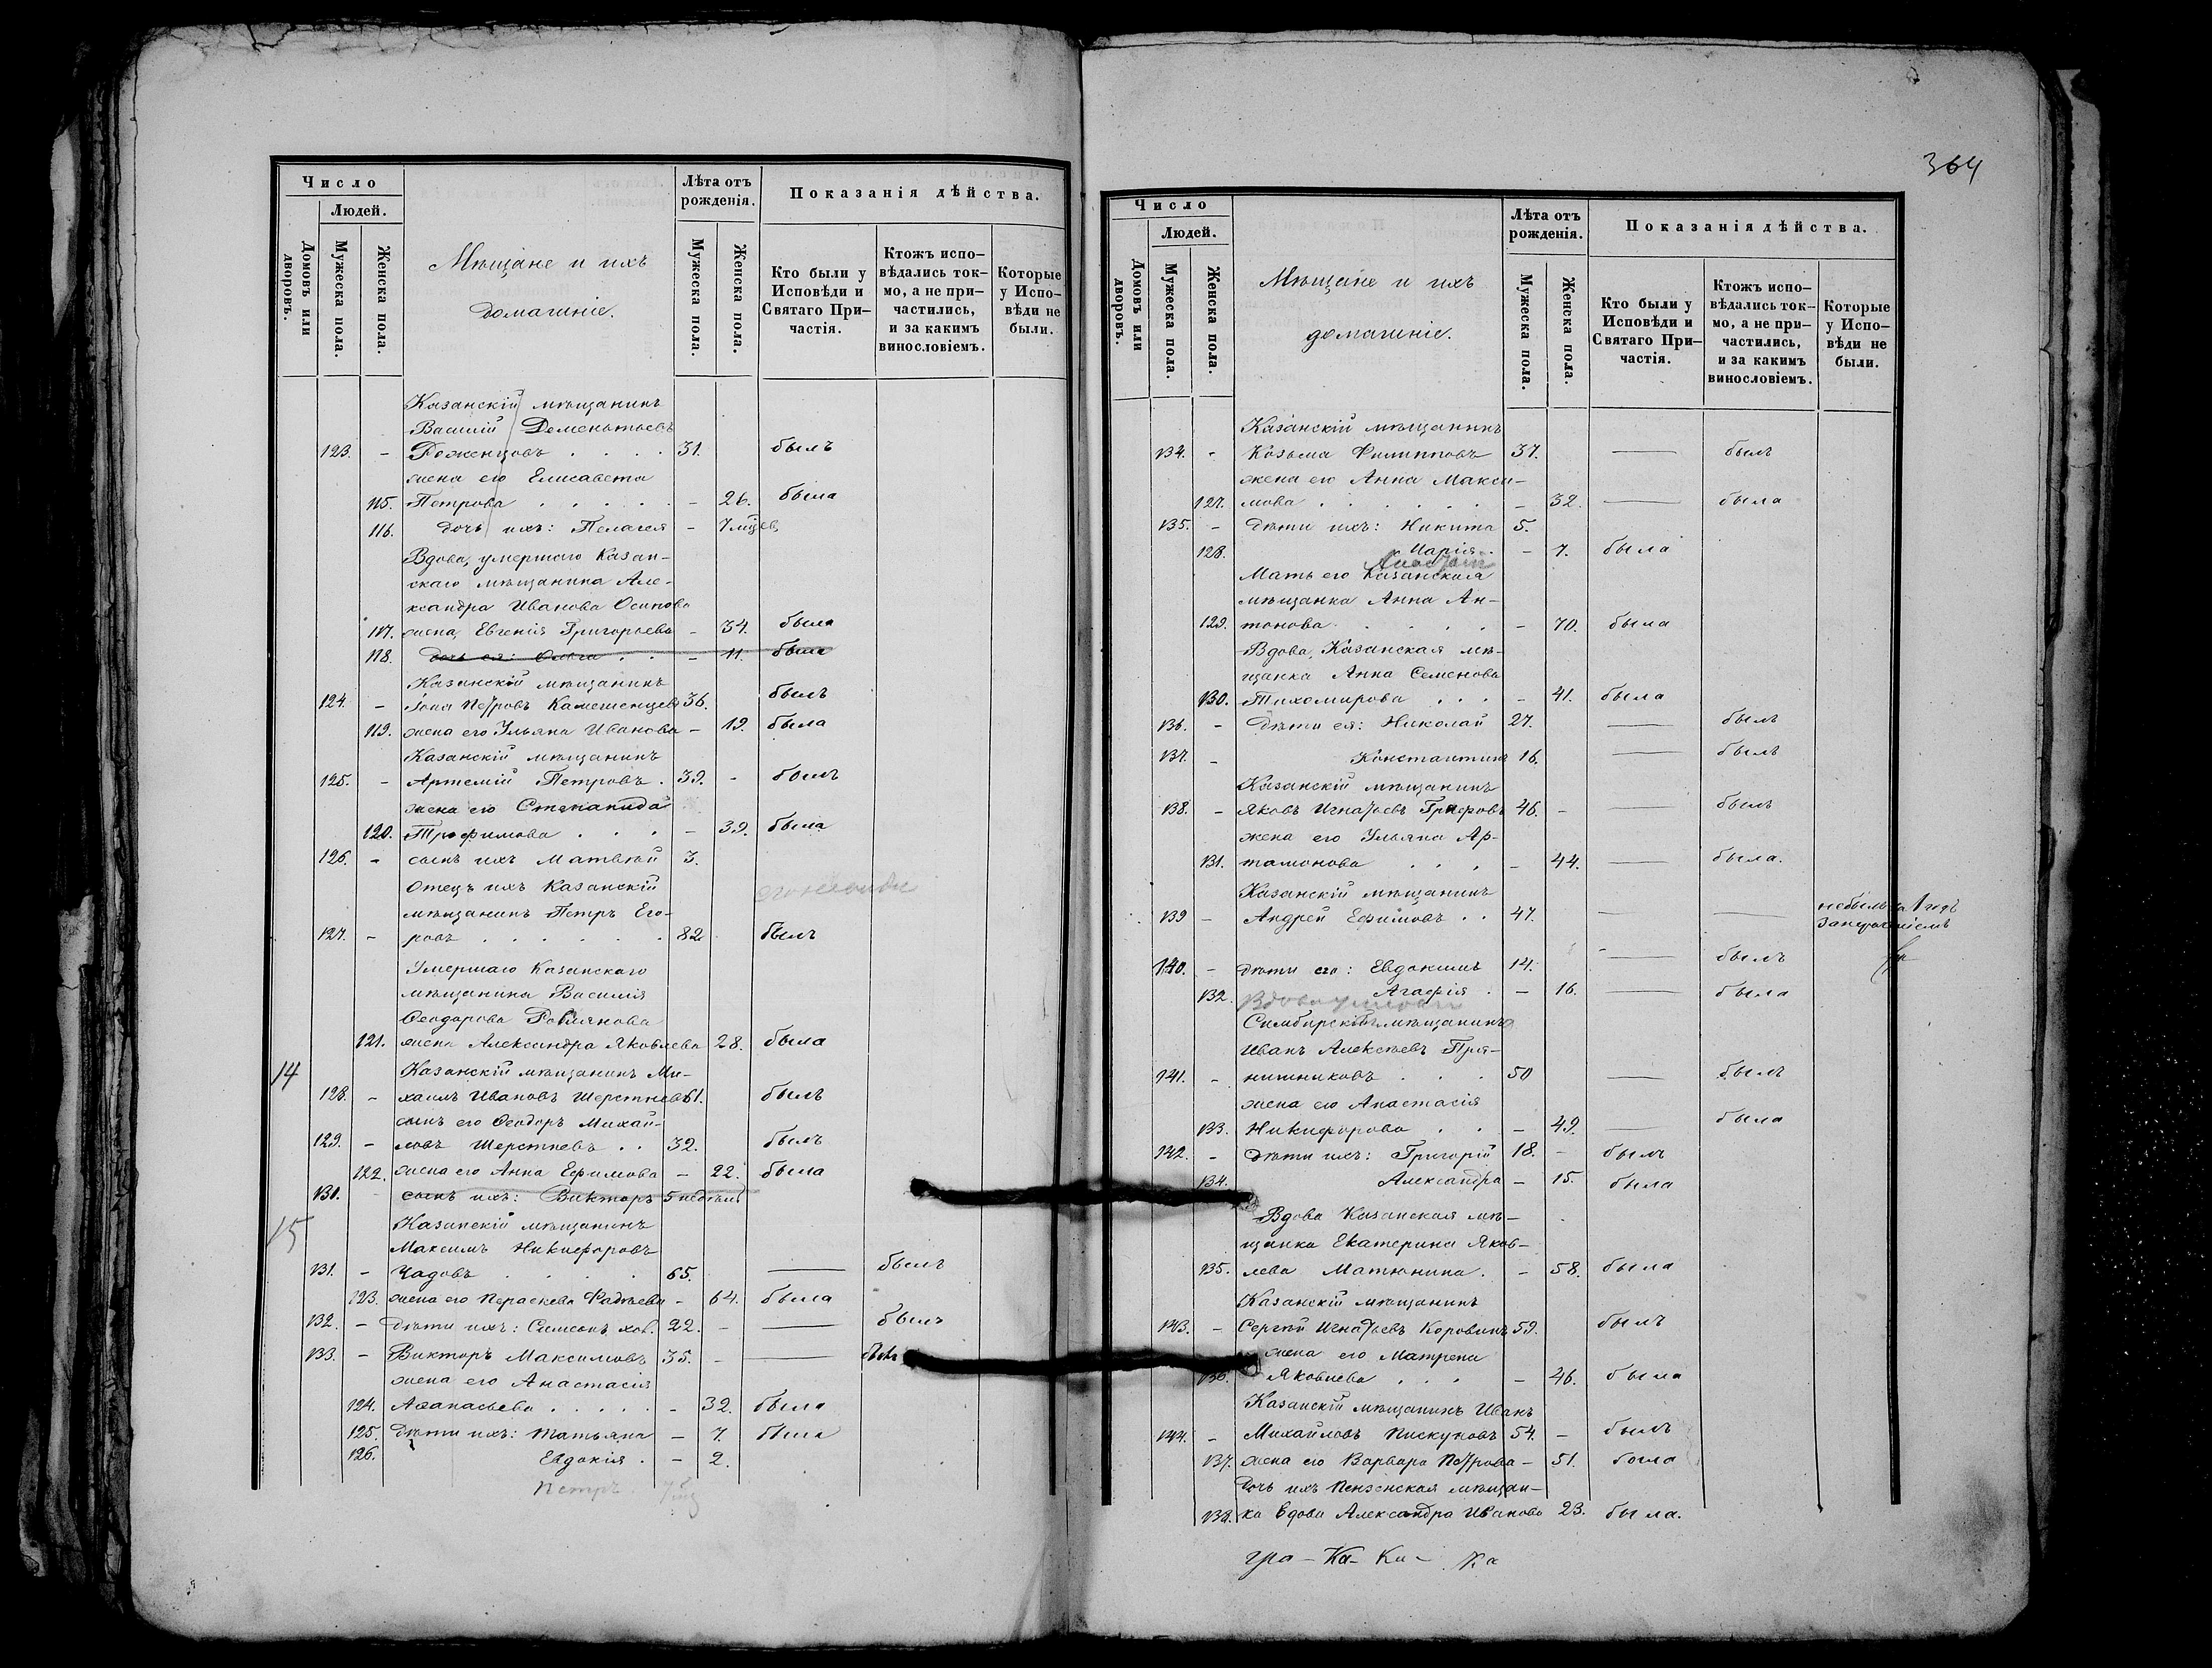 364
Число
Людей.
Домовъ или дворовъ.
Мужеска пола.
Женска пола.
Мѣщане и ихъ
домашніе.
Лѣта отъ рожденія.
Мужеска пола.
Женска пола.
Показанія дѣйства.
Кто были у Исповѣди и Святаго При-частія.
Ктожъ испо-вѣдались ток-мо, а не при-частились, и за какимъ винословіемъ.
Которые у Испо-вѣди не были.
Казанскій мѣщанинъ
Василій Дементьевъ
123. - Доженцовъ . . . . 31. былъ
жена его Елисавета
115. Петрова . . . . . - 26. была
116. дочь ихъ: Пелагея - 7 мѣсяцев
Вдова, умершаго Казан-
скаго мѣщанина Але-
ксандра Иванова Осипова
117. жена, Евгенія Григорьева - 34. была
118. дочь ея: Ольга . . - 11. была
Казанскій мѣщанинъ
124. - Іона Петровъ Камешенцевъ 36. былъ
119. жена его Ульяна Иванова - 19. была
Казанскій мѣщанинъ
125. - Артемій Петровъ . 39. - былъ
жена его Степанида
120. Трофимова . . . - 39. была
126. - сынъ ихъ Матвѣй 3.
Отецъ ихъ Казанскій
мѣщанинъ Петръ Его-
127. - ровъ . . . . . . 82 былъ
Умершаго Казанскаго
мѣщанина Василія
Ѳеодорова
121. жена Александра Яковлева 28. была
14 Казанскій мѣщанинъ Ми-
128. - хаилъ Ивановъ Шерстневъ 61. былъ
сынъ его Ѳеодоръ Михай-
129. - ловъ Шерстневъ . . 32. былъ
122. жена его Анна Ефимова - 22. была
130. сынъ ихъ: Викторъ 5 недѣль
15 Казанскій мѣщанинъ
Максимъ Никифоровъ
131. - Чадовъ . . . . 65. — былъ
123. жена его Параскева Фадѣева - 64. была
132. - Дѣти ихъ: Симеонъ хол. 22. - — былъ
133. - Викторъ Максимовъ 35. - — былъ
жена его Анастасія
124. Аѳанасьева . . . . . - 32. была
125. Дѣти ихъ: Татьяна - 7. была
126. Евдокія . - 2.
Петръ
Число
Людей.
Домовъ или дворовъ.
Мужеска пола.
Женска пола.
Мѣщане и ихъ
домашніе.
Лѣта отъ рожденія.
Мужеска пола.
Женска пола.
Показанія дѣйства.
Кто были у Исповѣди и Святаго При-частія.
Ктожъ испо-вѣдались ток-мо, а не при-частились, и за какимъ винословіемъ.
Которые у Испо-вѣди не были.
Казанскій мѣщанинъ
134. - Козьма Филипповъ 37. — былъ
жена его Анна Макси-
127. мова . . . . . . - 32. — была
135. - Дѣти ихъ: Никита 5.
128. Марія . - 7. была
Мать его Казанская
мѣщанка Анна Ан-
129. тонова . . . . . - 70. была
Вдова, Казанская мѣ-
щанка Анна Семенова
130. Тихомирова . . . - 41. была
136. - Дѣти ея: Николай 27. — былъ
137. - Константинъ 16. — былъ
Казанскій мѣщанинъ
138. - Яковъ Игнатьевъ 46. - — былъ
жена его Ульяна Ар-
131. тамонова . . . - 44. — была.
Казанскій мѣщанинъ
139 - Андрей Ефимовъ . . 47. — — не былъ за 1 годъ
140. - Дѣти его: Евдокимъ 14. — былъ
132. Агафія . - 16. — была
Вдова
Симбирскій мѣщанинъ
Иванъ Алексѣевъ Пря-
141. - нишниковъ . . . 50 — былъ
жена его Анастасія
133. Никифорова . . - 49. — была
142. - Дѣти ихъ: Григорій 18. - былъ
134. Александра - 15. была
Вдова Казанская мѣ-
щанка Екатерина Яков-
135. лева Матюнина . - 58. была
Казанскій мѣщанинъ
143. - Сергѣй Игнатьевъ Коровинъ 59. былъ
жена его Матрена
136. Яковлева . . . - 46. была
Казанскій мѣщанинъ Иванъ
144. - Михайловъ Пискуновъ 54. - былъ
137. жена его Варвара Петрова - 51. была
дочь ихъ Пензенская мѣщан-
138. ка вдова Александра Иванова 23. была.